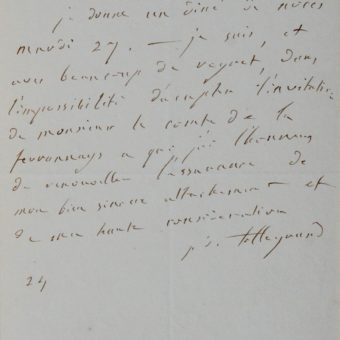 je donne un dîné de nôces
mardi 27. — je suis, et
avec beaucoup de regret, dans
l'impossibilité d'accepter l'invitation
de monsieur le comte de la
ferronnays a qui j'ai l'honneur
de renouveller l'assurance de
mon bien sincere attachement et
de ma haute consideration
talleyrand
24